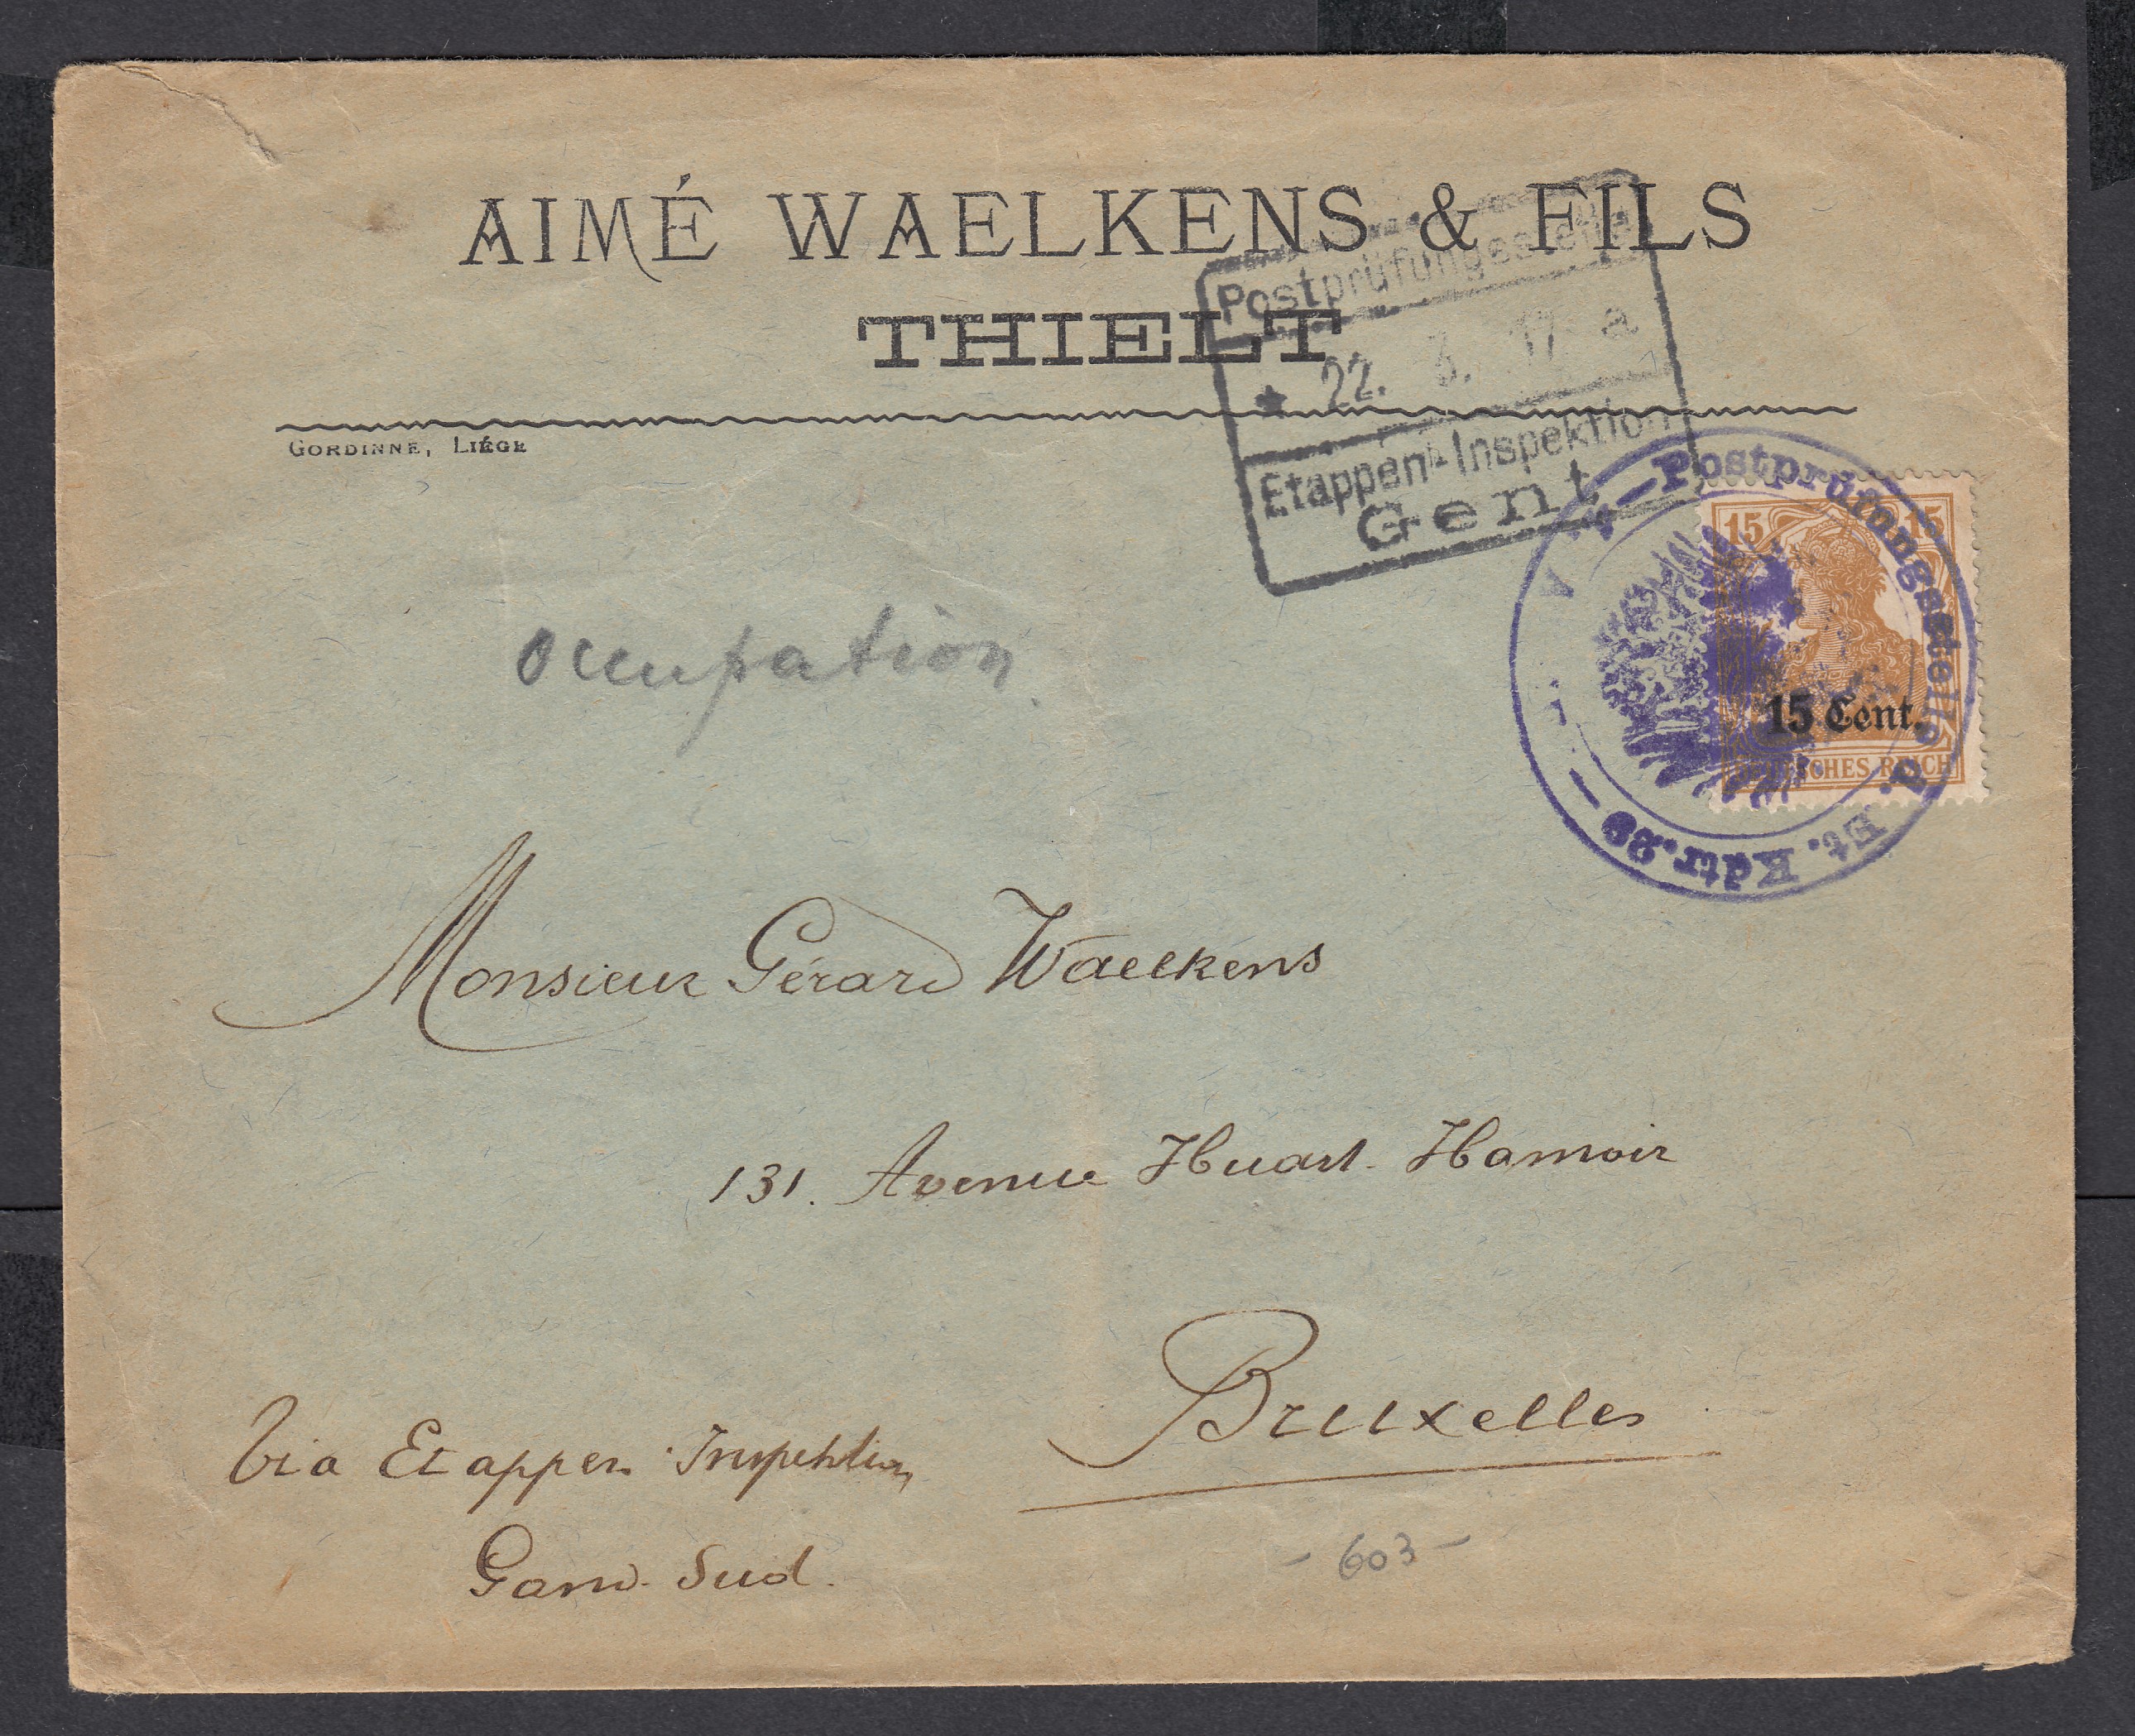 AIMÉ WAELKENS & FILS
THIELT
GORDINNE, LIÉGE
Postprüfungsstelle
* 22. 3. 17 a
Etappen-Inspektion
Gent
Postprüfungsstelle d. Et. Kdtr.
15 15
15 Cent.
DEUTSCHES REICH
Occupation
Monsieur Gérard Waelkens
131. Avenue Huart-Hamoir
Bruxelles
Via Etappen Inspektion
Gand-Sud.
- 603 -